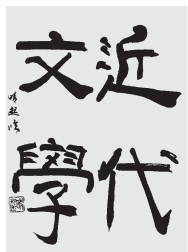 近代
文學